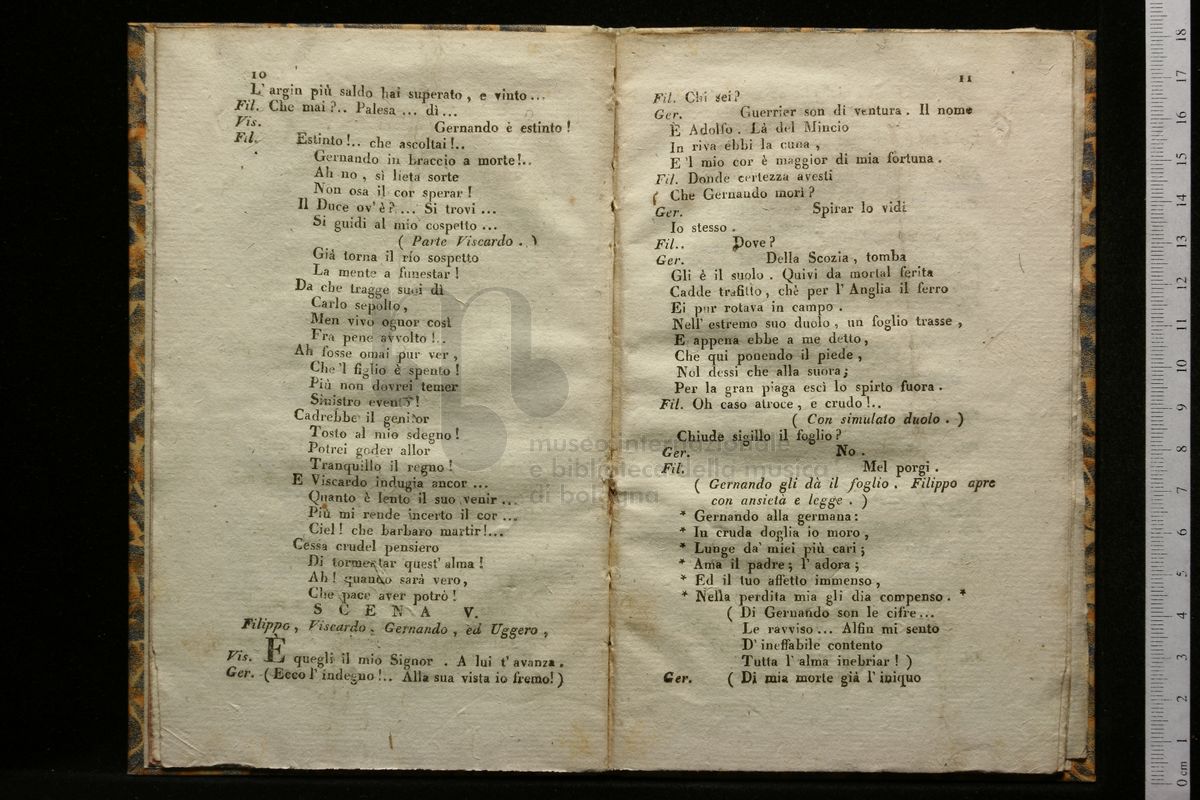 10
L' argin più saldo hai superato , e vinto ...
Fil. Che mai ?.. Palesa ... dì ...
Vis. Gernando è estinto !
Fil. Estinto !.. che ascoltai !..
Gernando in braccio a morte !..
Ah no , sì lieta sorte
Non osa il cor sperar !
Il Duce ov' è ? ... Si trovi ...
Si guidi al mio cospetto ...
( Parte Viscardo . )
Già torna il rio sospetto
La mente a funestar !
Da che tragge suoi dì
Carlo sepolto ,
Men vivo ognor così
Fra pene avvolto !..
Ah fosse omai pur ver ,
Che 'l figlio è spento !
Più non dovrei temer
Sinistro evento !
Cadrebbe il genitor
Tosto al mio sdegno !
Potrei goder allor
Tranquillo il regno !
E Viscardo indugia ancor ...
Quanto è lento il suo venir ...
Più mi rende incerto il cor ...
Ciel ! che barbaro martir !...
Cessa crudel pensiero
Di tormentar quest' alma !
Ah ! quando sarà vero ,
Che pace aver potrò !
SCENA V.
Filippo , Viscardo , Gernando , ed Uggero ,
Vis. È quegli il mio Signor . A lui t' avanza .
Ger. ( Ecco l' indegno !.. Alla sua vista io fremo ! )
11
Fil. Chi sei ?
Ger. Guerrier son di ventura . Il nome
È Adolfo . Là del Mincio
In riva ebbi la cuna ,
E 'l mio cor è maggior di mia fortuna .
Fil. Donde certezza avesti
Che Gernando morì ?
Ger. Spirar lo vidi
Io stesso .
Fil.. Dove ?
Ger. Della Scozia , tomba
Gli è il suolo . Quivi da mortal ferita
Cadde trafitto , chè per l' Anglia il ferro
Ei pur rotava in campo .
Nell' estremo suo duolo , un foglio trasse ,
E appena ebbe a me detto ,
Che qui ponendo il piede ,
Nol dessi che alla suora ;
Per la gran piaga escì lo spirto fuora .
Fil. Oh caso atroce , e crudo !..
( Con simulato duolo . )
Chiude sigillo il foglio ?
Ger. No .
Fil. Mel porgi .
( Gernando gli dà il foglio . Filippo apre
con ansietà e legge . )
* Gernando alla germana :
* In cruda doglia io moro ,
* Lunge da' miei più cari ;
* Ama il padre ; l' adora ;
* Ed il tuo affetto immenso ,
* Nella perdita mia gli dia compenso . *
( Di Gernando son le cifre ...
Le ravviso ... Alfin mi sento
D' ineffabile contento
Tutta l' alma inebriar ! )
Ger. ( Di mia morte già l' iniquo
museo internazionale
e biblioteca della musica
di bologna
0 cm 1 2 3 4 5 6 7 8 9 10 11 12 13 14 15 16 17 18